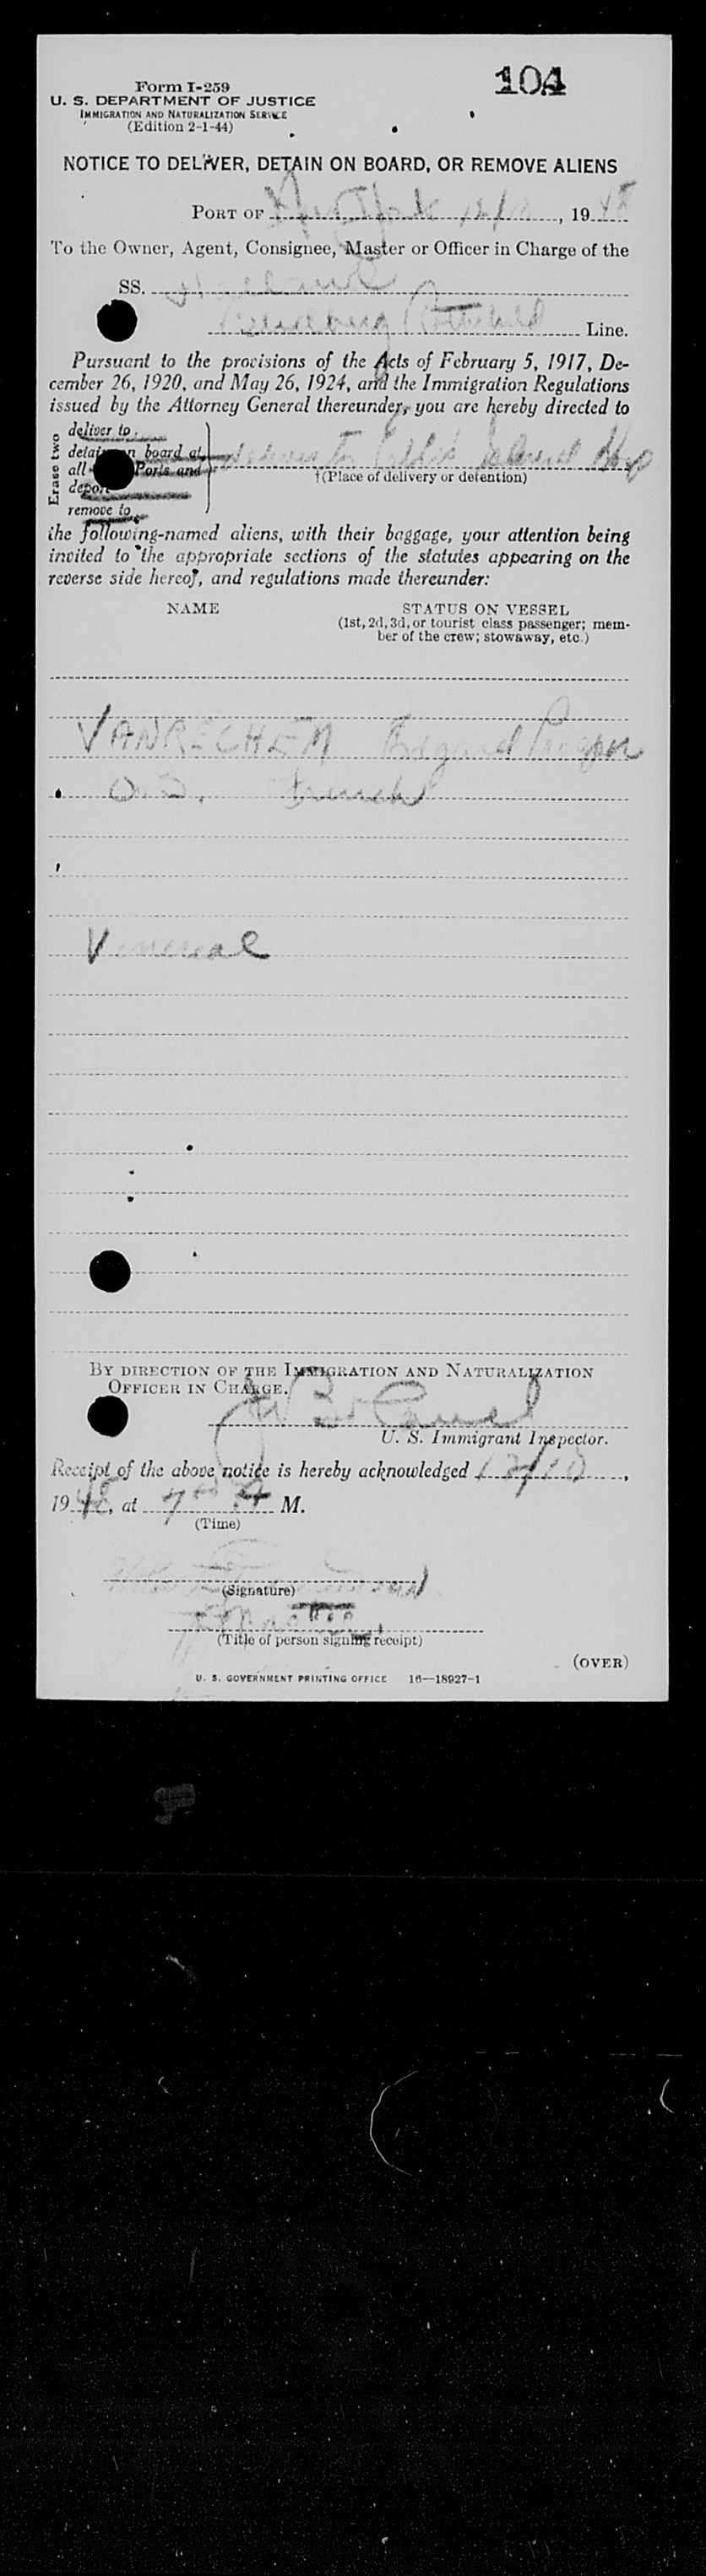 104
Form I-259
U. S. DEPARTMENT OF JUSTICE
IMMIGRATION AND NATURALIZATION SERVICE
(Edition 2-1-44)
NOTICE TO DELIVER, DETAIN ON BOARD, OR REMOVE ALIENS
PORT OF New York 12/ , 1948
To the Owner, Agent, Consignee, Master or Officer in Charge of the
SS.
Line.
Pursuant to the provisions of the Acts of February 5, 1917, De-
cember 26, 1920, and May 26, 1924, and the Immigration Regulations
issued by the Attorney General thereunder, you are hereby directed to
Erase two
deliver to
detain on board at
all Ports and
deport
remove to
deliver to Ellis Island Hosp
†(Place of delivery or detention)
the following-named aliens, with their baggage, your attention being
invited to the appropriate sections of the statutes appearing on the
reverse side hereof, and regulations made thereunder:
NAME STATUS ON VESSEL
(1st, 2d, 3d, or tourist class passenger; mem-
ber of the crew; stowaway, etc.)
VANRECHEM
O.S. French
Venereal
BY DIRECTION OF THE IMMIGRATION AND NATURALIZATION
OFFICER IN CHARGE.
U. S. Immigrant Inspector.
Receipt of the above notice is hereby acknowledged 12/10,
1948, at 7 A M.
(Time)
(Signature)
(Title of person signing receipt)
(OVER)
U. S. GOVERNMENT PRINTING OFFICE 16—18927-1